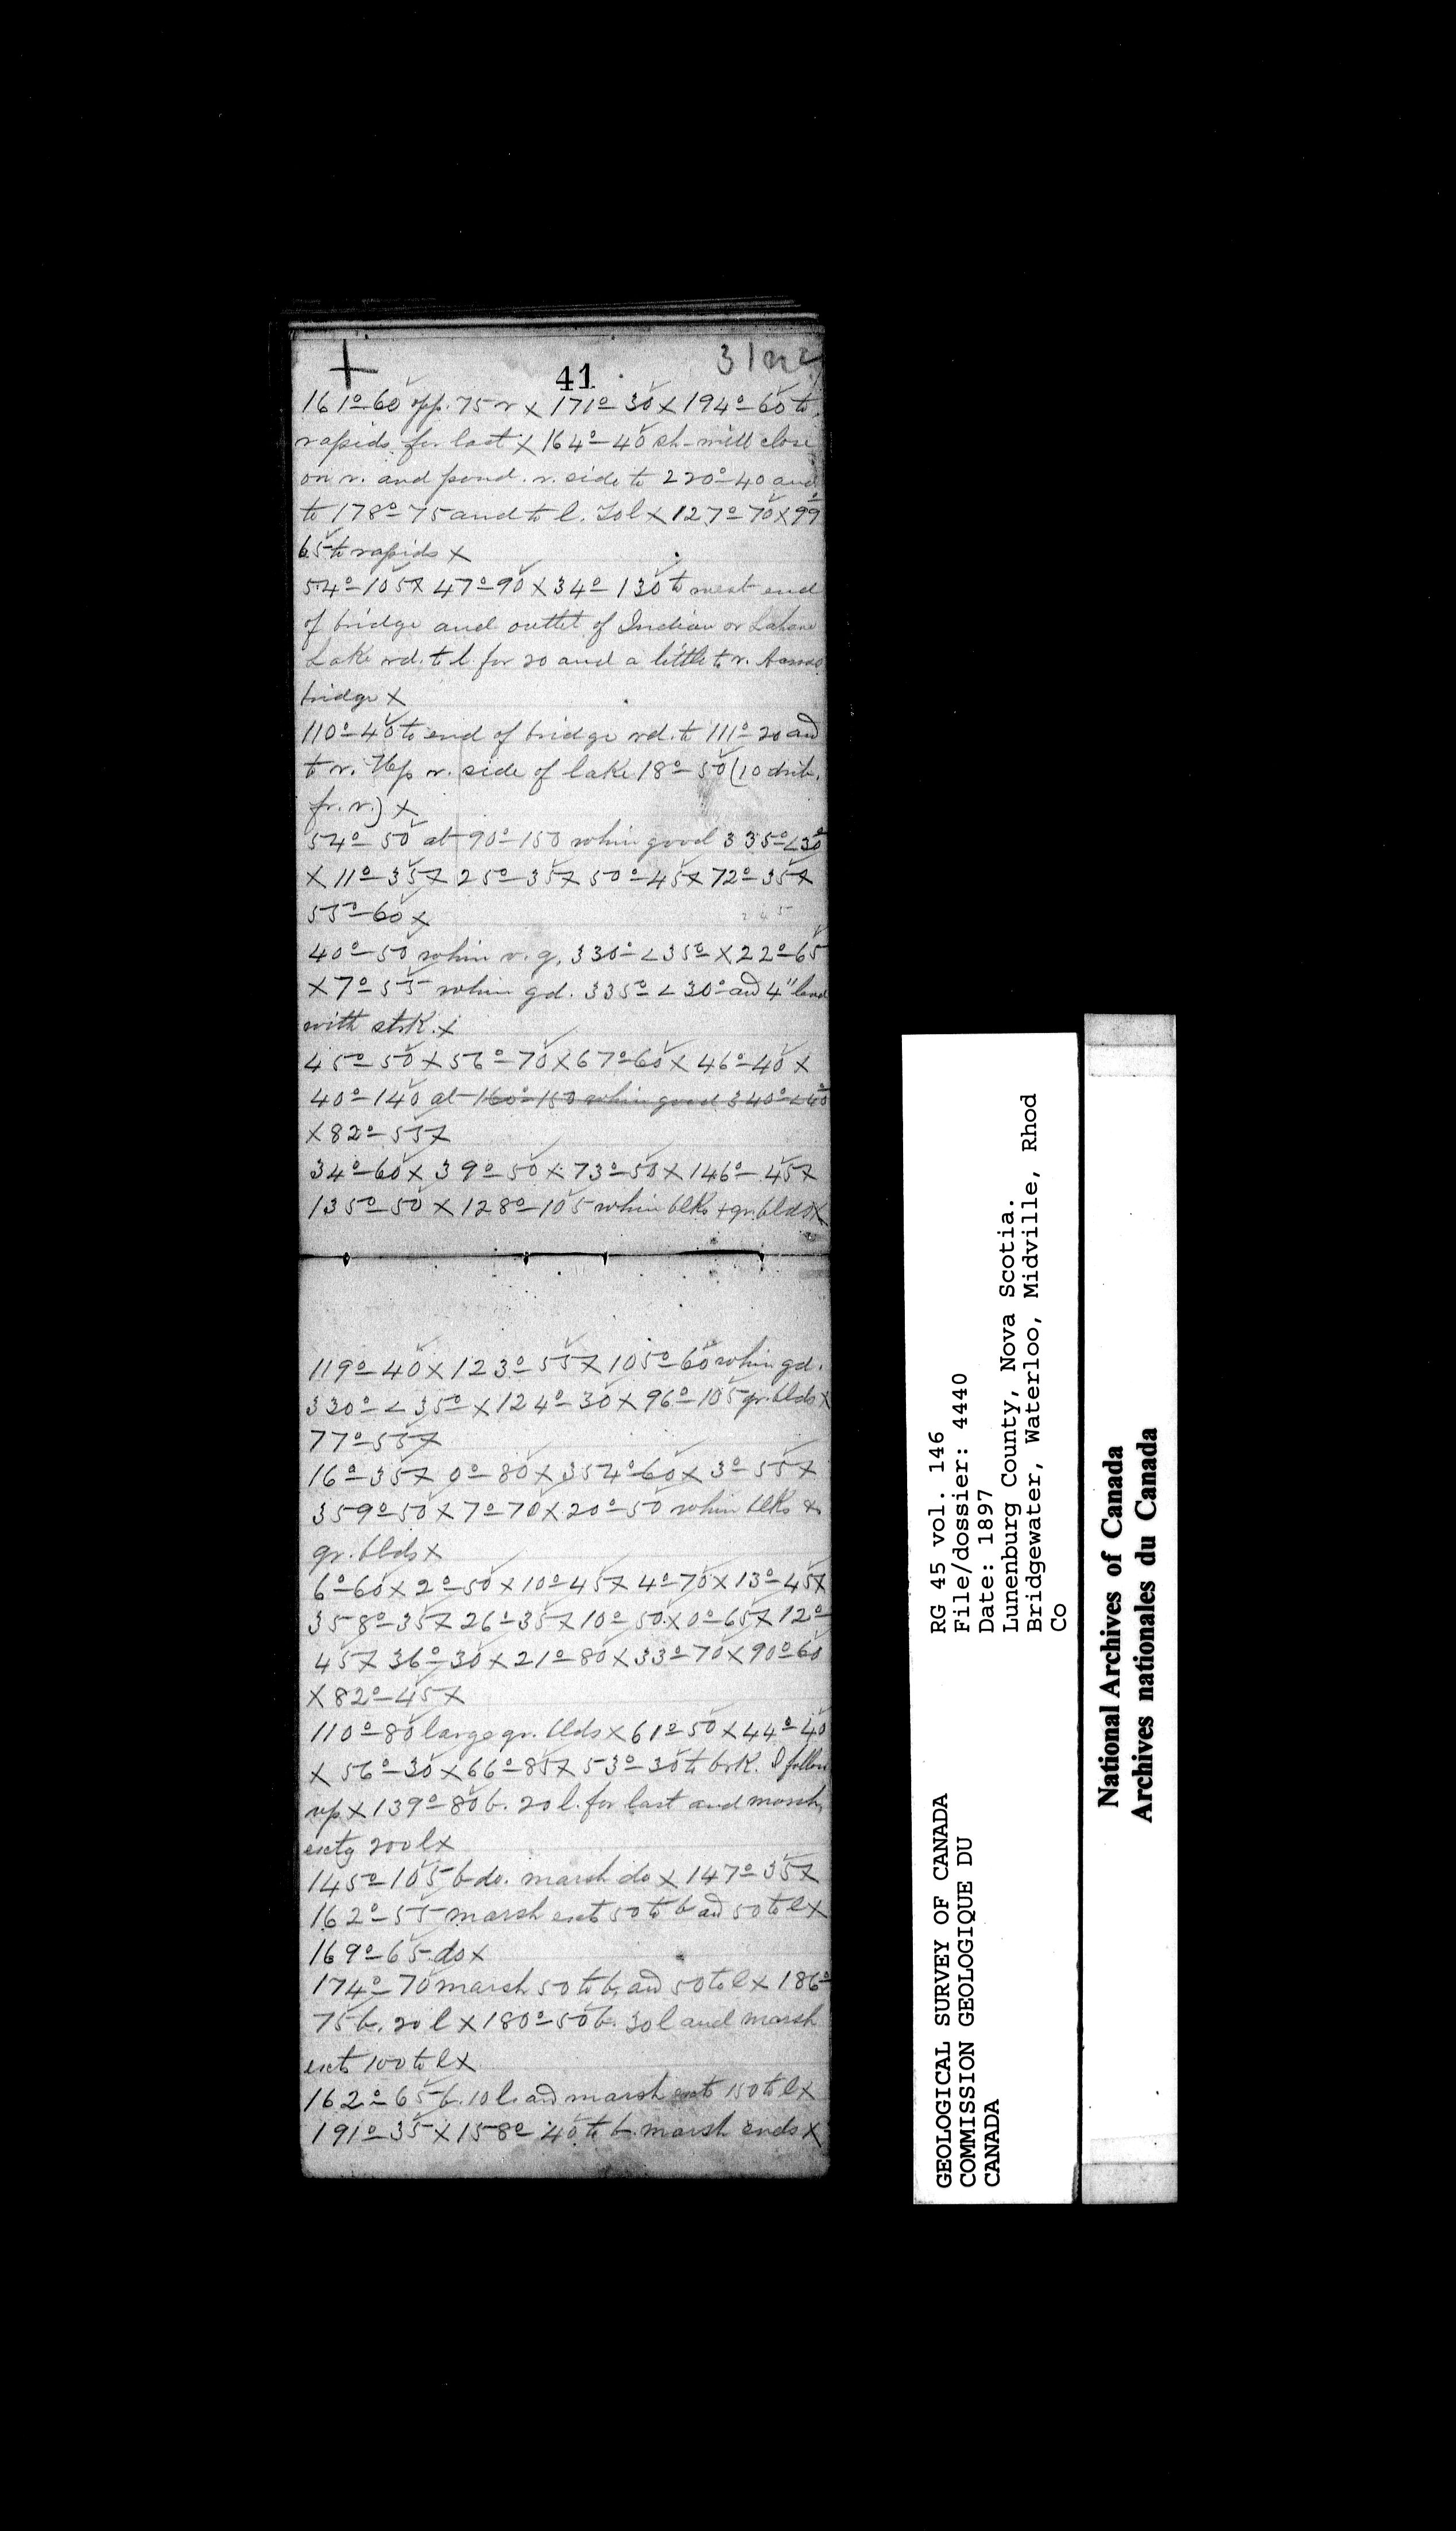 41
161° 60 opp. 75 r x 171° 30 x 194° 60 to
rapids for last x 164° 40 sh-mill close
on r. and pond. r. side to 220° 40 and
to 178° 75 and to l. 20 l x 127° 70 x 99°
65 to rapids x
54° 105 x 47° 90 x 34° 130 to west end
of bridge and outlet of Indian or Lahave
Lake rd. to l. for 20 and a little to r. Across
bridge x
110° 40 to end of bridge rd. to 111° 20 and
to r. Up r. side of lake 18° 50 (10 dist.
fr. r.) x
54° 50 at 90° 150 whin good 335° <30°
x 11° 35 x 25° 35 x 50° 45 x 72° 35 x
55° 60 x
245
40° 50 whin v. g. 330° <35° x 22° 65
x 7° 55 whin gd. 335° <30° and 4"
with strk. x
45° 50 x 56° 70 x 67° 60 x 46° 40 x
40° 140 at 160° 150 whin good 340° <40°
x 82° 55 x
34° 60 x 39° 50 x 73° 50 x 146° 45 x
135° 50 x 128° 105 whin blks + gr. blds x
119° 40 x 123° 55 x 105° 60 whin gd.
330° <35° x 124° 30 x 96° 105 gr. blds x
77° 55 x
16° 35 x 0° 80 x 354° 60 x 3° 55 x
359° 50 x 7° 70 x 20° 50 whin blks &
gr. blds x
6° 60 x 2° 50 x 10° 45 x 4° 70 x 13° 45 x
358° 35 x 26° 35 x 10° 50 x 0° 65 x 12°
45 x 36° 30 x 21° 80 x 33° 70 x 90° 60
x 82° 45 x
110° 80 large gr. blds x 61° 50 x 44° 40
x 56° 30 x 66° 85 x 53° 30 to brk. I follow
up x 139° 80 b. 20 l. for last and marsh
extg 200 l x
145° 105 b do. marsh do x 147° 35 x
162° 55 marsh exts 50 to b and 50 to l x
169° 65 do x
174° 70 marsh 50 to b. and 50 to l x 186°
75 b. 20 l x 180° 50 b. 30 l and marsh
exts 100 to l x
162° 65 b. 10 l. and marsh exts 150 to l x
191° 35 x 158° 40 to b. marsh ends x
RG 45 vol. 146
File/dossier: 4440
Date: 1897
Lunenburg County, Nova Scotia.
Bridgewater, Waterloo, Midville, Rhod
Co
GEOLOGICAL SURVEY OF CANADA
COMMISSION GEOLOGIQUE DU
CANADA
National Archives of Canada
Archives nationales du Canada